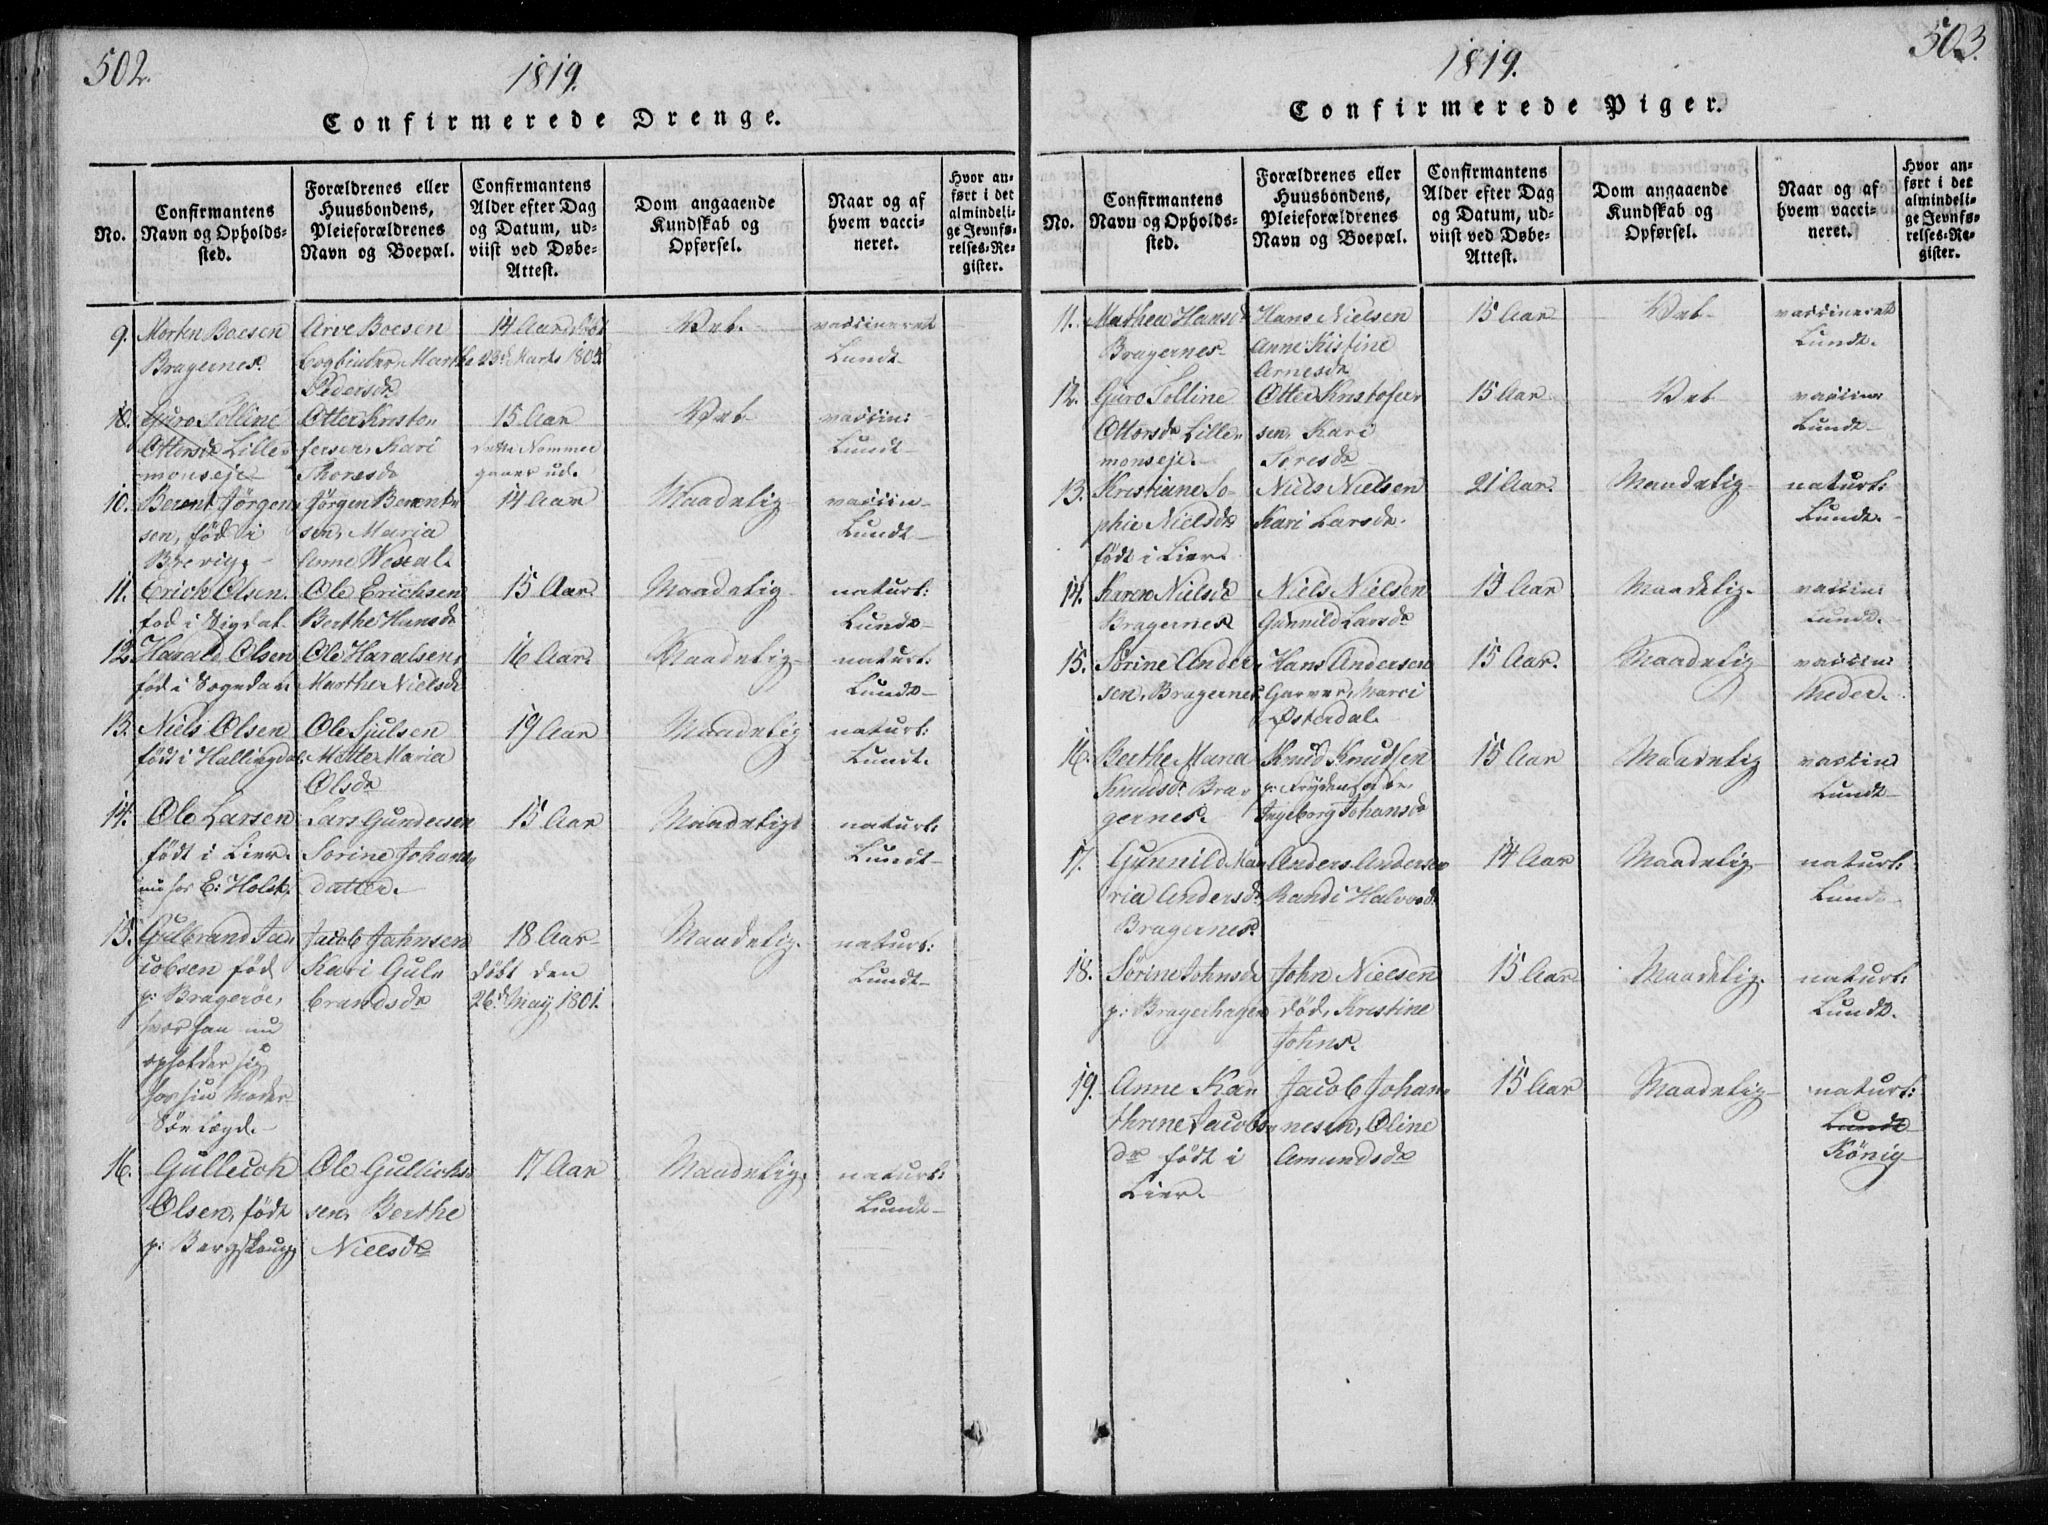 502.
1819.
Confirmerede Drenge.
No.
Confirmantens
Navn og Opholds-
sted.
Forældrenes eller
Huusbondens,
Pleieforældrenes
Navn og Boepæl.
Confirmantens
Alder efter Dag
og Datum, ud-
viist ved Døbe-
Attest.
Dom angaaende
Kundskab og
Opførsel.
Naar og af
hvem vacci-
neret.
Hvor an-
ført i det
almindeli-
ge Jevnfø-
relses-Re-
gister.
9.
Morten Boesen
Bragernes.
Arve Boesen
Marthe
Pedersdr
14 Aar
23d Marts
Vel.
vaccineret
Lundt
10.
Guro Tolline
Ottersdr Lille-
monseje
Otter Kristo-
fersen, Kari
Thoresdr
15 Aar
dette Nommer
gaaer ud.
Vel
vaccin:
Lundt
10.
Berent Jørgen-
sen, fød i
Jørgen Berent-
sen, Maria
Anne Westal.
14 Aar
Maadelig
vaccin-
Lundt
11.
Erich Olsen.
fød i Sigdal
Ole Erichsen
Berthe Hansdr
15 Aar
Maadelig
naturl:
Lundt
12.
Harald Olsen
fød i Sognedal.
Ole Haralsen,
Marthe Nielsdr
16 Aar
Maadelig
naturl:
Lundt
13.
Niels Olsen
født i Hallingdal.
Ole Sjulsen
Mette Maria
Olsdr
19 Aar
Maadelig
naturl:
Lundt.
14.
Ole Larsen
født i Lier.
nu hos E: Holst.
Lars Gundersen
Sorine Johans-
datter.
15 Aar
Maadelig
naturl:
Lundt
15.
Gulbrand Ja-
cobsen fød
p: Bragerøe,
hvor han nu
opholder sig
hos sin Moder
Jacob Jahnsen
Kari Gul-
brandsdr
18 Aar
døbt den
26d May 1801.
Maadelig.
naturl:
Lundt
16.
Gulleich
Olsen, født
p: Bergskoug
Ole Gullichs-
sen, Berthe
Nielsdr
17 Aar
Maadelig.
naturl:
Lundt
503.
1819.
Confirmerede Piger.
No.
Confirmantens
Navn og Opholds-
sted.
Forældrenes eller
Huusbondens,
Pleieforældrenes
Navn og Boepæl.
Confirmantens
Alder efter Dag
og Datum, ud-
viist ved Døbe-
Attest.
Dom angaaende
Kundskab og
Opførsel.
Naar og af
hvem vacci-
neret.
Hvor an-
ført i det
almindeli-
ge Jevnfø-
relses-Re-
gister.
11.
Mathea Hansdr
Bragernes
Hans Nielsen
Anne Kistine
Arnesdr
15 Aar
Vel
vaccineret
Lundt.
12.
Guro Tolline
Ottersdr Lille-
monseje.
Otter Kristofer-
sen, Kari
Toresdr
15 Aar
Vel
vaccin:
Lundt
13.
Kristiane So-
phie Nielsdr
født i Lier.
Niels Nielsen
Kari Larsdr.
21 Aar.
Maadelig
naturl:
Lundt.
14.
Karen Nielsdr
Bragernes
Niels Nielsen
Gunnild Larsdr
15 Aar
Maadelig.
vaccin:
Lundt.
15.
Sørine Ander-
sen, Bragernes
Hans Andersen
Garver, Marei
Østerdal.
15 Aar.
Maadelig
vaccin:
Meder.
16.
Berthe Maria
Knudsdr Bra-
gernes.
Knud Knudsen
Ingeborg Johansdr
15 Aar
Maadelig
vaccin:
Lundt
17.
Gunnild Ma-
ria Andersdr
Bragernes.
Anders Andersen
Randi Halvorsdr
14 Aar
Maadelig
naturl:
Lundt
18.
Sørine Johnsdr
p: Bragerhagen
John Nielsen
død, Kristine
Johns.
15 Aar
Maadelig.
naturl:
Lundt.
19.
Anne Ka-
thrine Jacobs-
dr født i
Lier.
Jacob Johan-
nesen, Oline
Amundsdr
15 Aar
Maadelig
naturl:
Lundt
König